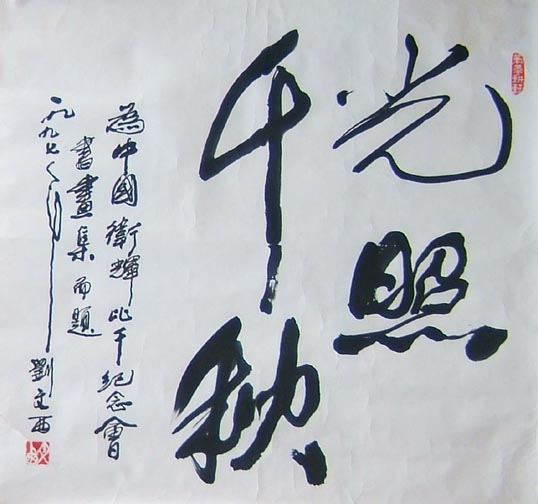 光照
千秋
為中國衛輝比干紀念會
書畫集而題
一九九七
劉文西